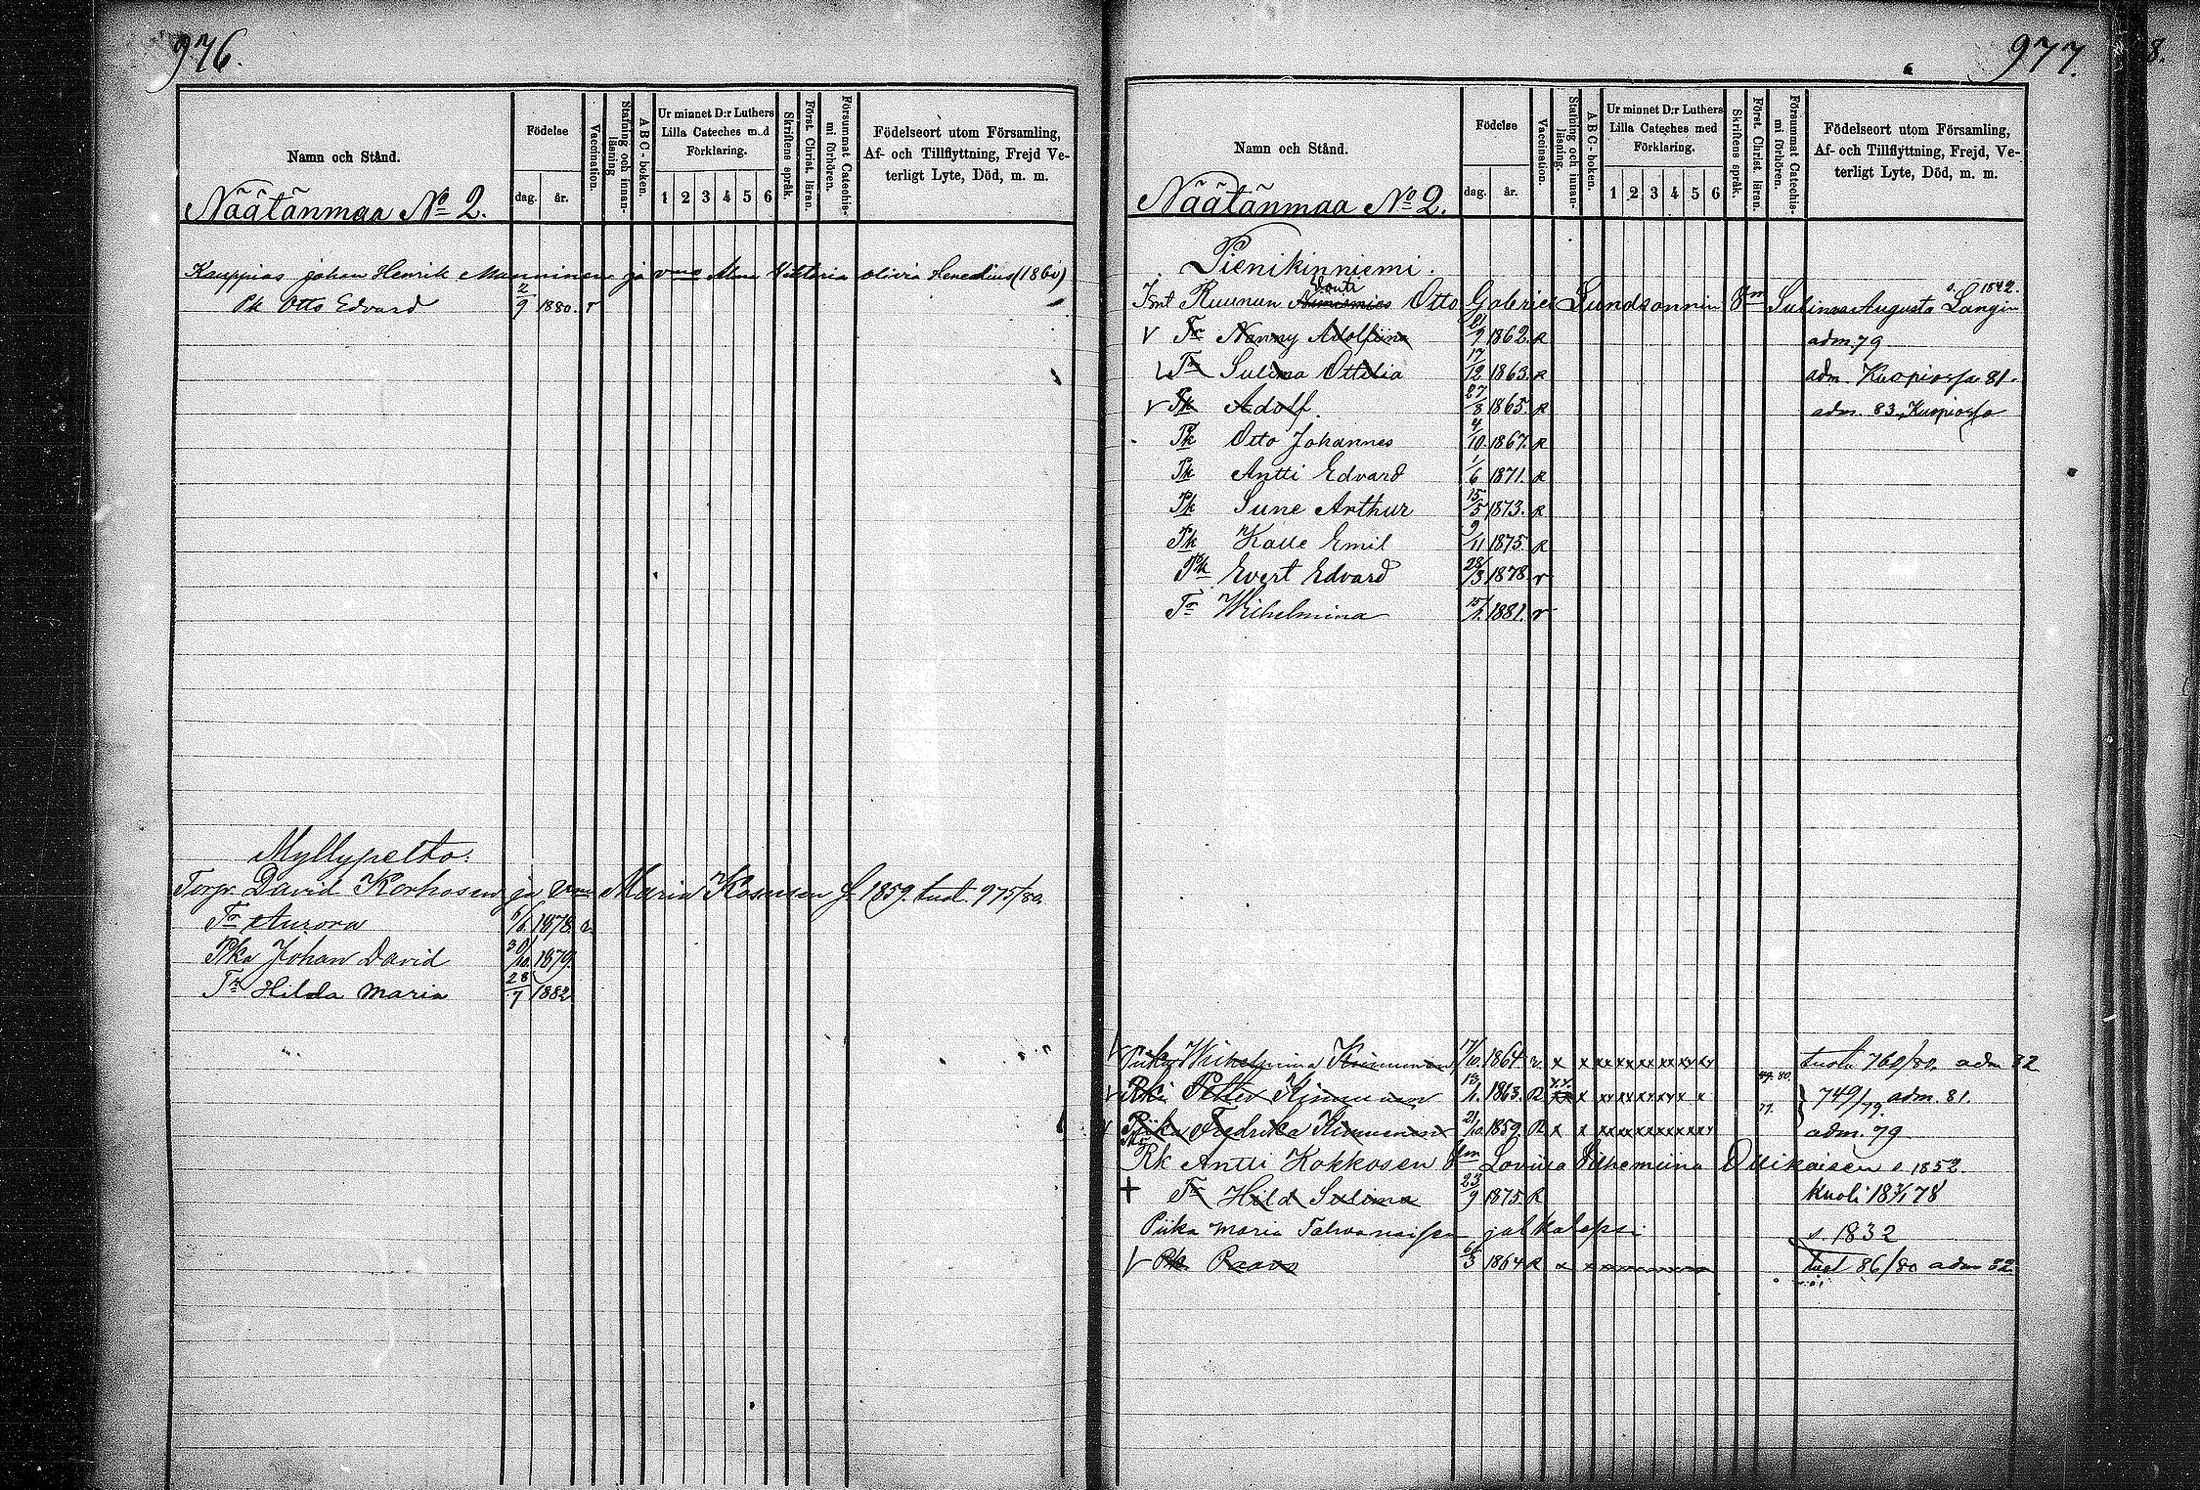 976.
Namn och Stånd.
Näätänmaa No 2.
Födelse
dag. år.
Vaccination.
Stafning och innan-läsning
A B C - boken.
Ur minnet D:r Luthers
Lilla Cateches med
Förklaring.
1 2 3 4 5 6
Skriftens språk.
Först. Christ. läran.
Försummat Catechis-mi förhören.
Födelseort utom Församling,
Af- och Tillflyttning, Frejd Ve-
terligt Lyte, Död, m. m.
Kauppias Johan Henrik Manninen ja vmo Alma Viktoria Olivia (1860)
Pk Otto Edvard 2/9 1880. r
Myllypelto.
Torp. David Korhonen ja vmo Maria Kosunen f. 1859. tust. 975/80.
Tr Aurora 6/6 1878.
Pka Johan David 30/10. 1879.
Tr Hilda Maria 28/7 1882
977.
Namn och Stånd.
Näätänmaa No 2.
Födelse
dag. år.
Vaccination.
Stafning och innan-läsning.
A B C - boken.
Ur minnet D:r Luthers
Lilla Cateches med
Förklaring.
1 2 3 4 5 6
Skriftens språk.
Först. Christ. läran.
Försummat Catechis-mi förhören.
Födelseort utom Församling,
Af- och Tillflyttning, Frejd, Ve-
terligt Lyte, Död, m. m.
Pienikinniemi.
Ruunun vouti Otto Gabriel Sundsonnin Selinna Augusta Langin s. 1842.
Tr Nanny Adolfiina 21/9 1862. R adm. 79
Tr Selima Ottilia 17/12 1863. R adm. Kuopiossa 81.
Pk Adolf. 27/8 1865. R adm. 83. Kuopiossa
Pk Otto Johannes 4/10. 1867. R
Pk Antti Edvard 1/6 1871. R
Pk Sune Arthur 15/5 1873. R
Pk Kalle Emil 9/11 1875. R
Pk Evert Edvard 28/3 1878 r
Tr Wilhelmina 15/1. 1881. r
Piika Wilhelmina Kinnunen 17/10. 1864. r x x xx xx xx xx xx xy tust. 760/80. adm 82
Rki Petter Kinnunen 13/1. 1863. R x x 79. 80. 749/79. adm. 81.
Piika Fredrika Kinnunen 21/10 1859. R x x 77. adm. 79
Rk Antti Kokkosen Loviisa Vilhemiina Ollikaisen s 1852.
Tr Hild Selima 23/9 1875 R Kuoli 18 3/1 78
Piika Maria Tahvanaisen jalkalapsi s. 1832
Pk Paavo 6/3 1864 R x x tust 86/80 adm 82.